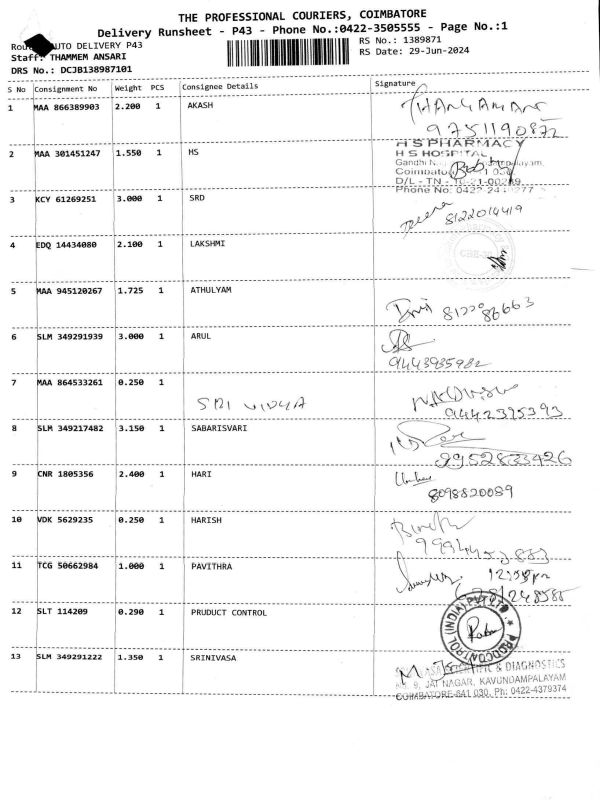 THE PROFESSIONAL COURIERS, COIMBATORE
Delivery Runsheet - P43 - Phone No.:0422-3505555 - Page No.:1
AUTO DELIVERY P43
RS No.: 1389871
Staff: THAMMEM ANSARI
RS Date: 29-Jun-2024
DRS No.: DCJB138987101
S No Consignment No Weight PCS Consignee Details Signature
1 MAA 866389903 2.200 1 AKASH
9751190872
H S PHARMACY
2 MAA 301451247 1.550 1 HS
H S HOSPITAL
Coimbato
D/L - TN -
Phone No: 0422-24
3 KCY 61269251 3.000 1 SRD
8122014419
4 EDQ 14434080 2.100 1 LAKSHMI
5 MAA 945120267 1.725 1 ATHULYAM
6 SLM 349291939 3.000 1 ARUL
9443935982
7 MAA 864533261 0.250 1
SRI VIDYA
9442395393
8 SLM 349217482 3.150 1 SABARISVARI
9952833426
9 CNR 1805356 2.400 1 HARI
8098820089
10 VDK 5629235 0.250 1 HARISH
11 TCG 50662984 1.000 1 PAVITHRA
12 SLT 114209 0.290 1 PRUDUCT CONTROL
PRODCONTROL (INDIA) PVT LTD.
13 SLM 349291222 1.350 1 SRINIVASA
& DIAGNOSTICS
9, JAI NAGAR, KAVUNDAMPALAYAM
COIMBATORE-641 030. Ph: 0422-4379374